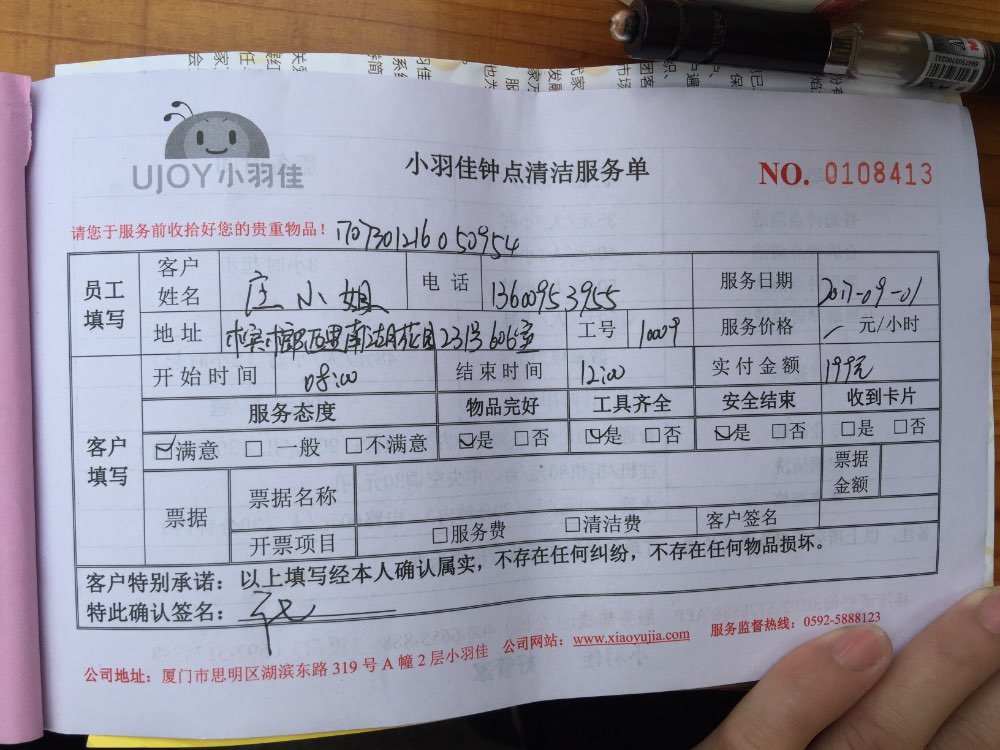 UJOY小羽佳
小羽佳钟点清洁服务单
NO. 0108413
请您于服务前收拾好您的贵重物品！
员工填写 客户姓名 庄小姐 电话 13600953955 服务日期 2017-09-01
地址 槟榔西里南湖花园231号606室 工号 10009 服务价格 元/小时
客户填写 开始时间 08:00 结束时间 12:00 实付金额 199元
服务态度 物品完好 工具齐全 安全结束 收到卡片
☑满意 □一般 □不满意 ☑是 □否 ☑是 □否 ☑是 □否 □是 □否
票据 票据名称 票据金额
开票项目 □服务费 □清洁费 客户签名
客户特别承诺：以上填写经本人确认属实，不存在任何纠纷，不存在任何物品损坏。
特此确认签名：
公司地址：厦门市思明区湖滨东路 319 号 A 幢 2 层小羽佳 公司网站：www.xiaoyujia.com 服务监督热线：0592-5888123